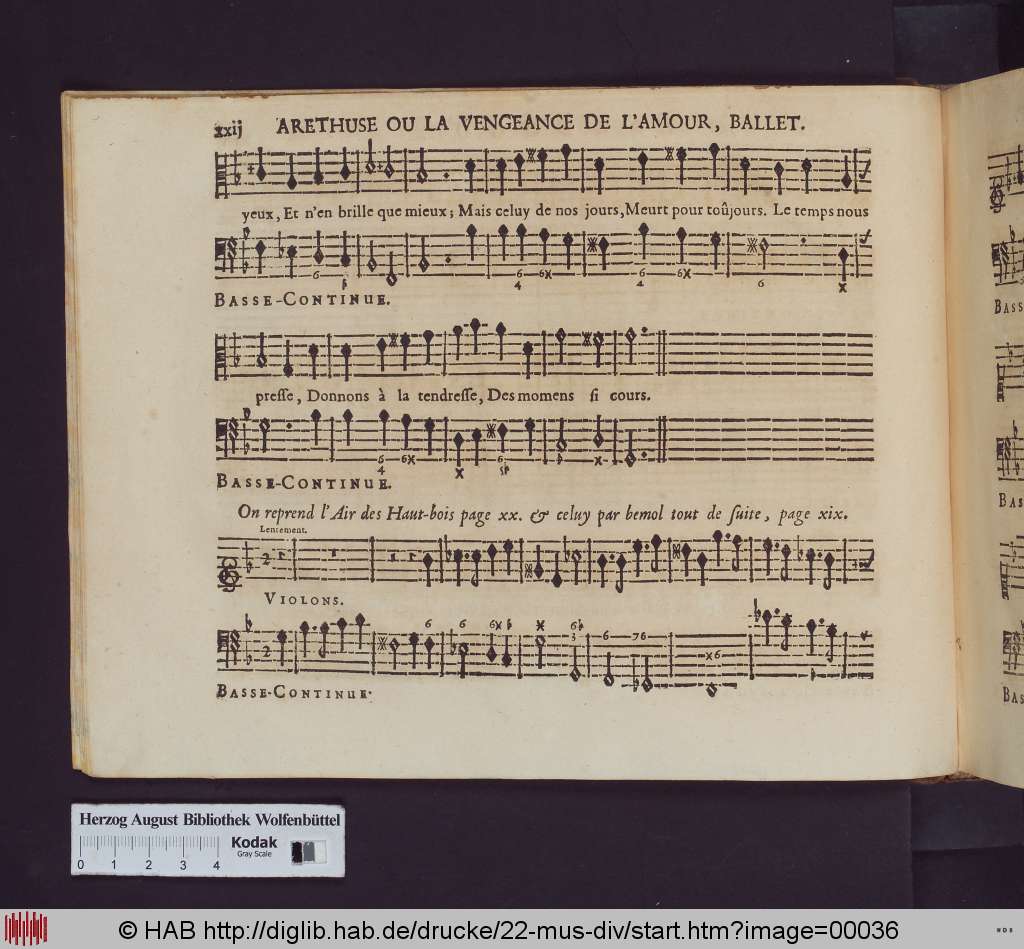 xxij ARETHUSE OU LA VENGEANCE DE L'AMOUR, BALLET.
yeux, Et n'en brille que mieux; Mais celuy de nos jours, Meurt pour toûjours. Le temps nous
BASSE-CONTINUE.
presse, Donnons à la tendresse, Des momens si cours.
BASSE-CONTINUE.
On reprend l'Air des Haut-bois page xx. & celuy par bemol tout de suite, page xix.
Lentement.
VIOLONS.
BASSE-CONTINUE.
BASS
BASS
BAS
Herzog August Bibliothek Wolfenbüttel
Kodak
Gray Scale
0 1 2 3 4
© HAB http://diglib.hab.de/drucke/22-mus-div/start.htm?image=00036